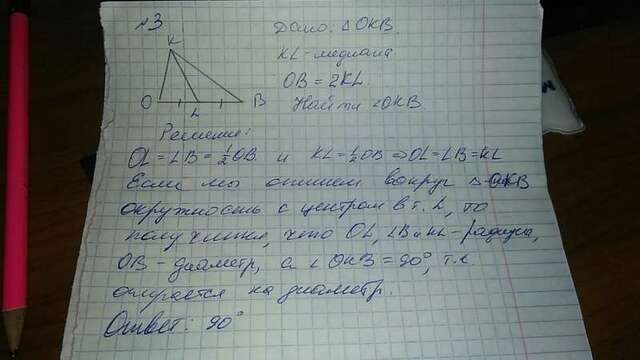 №3
Дано: △OKB
KL - медиана
OB = 2KL.
Найти ∠OKB.
K
O
L
B
Решение:
OL = LB = ½OB и KL = ½OB ⇒ OL = LB = KL
Если мы опишем вокруг △OKB
окружность с центром в т. L, то
получится, что OL, LB и KL - радиусы,
OB - диаметр, а ∠OKB = 90°, т.к
опирается на диаметр.
Ответ: 90°